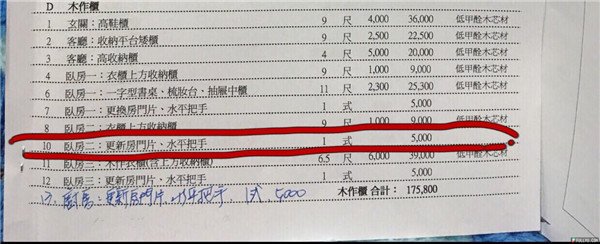 D 木作櫃
1 玄關：高鞋櫃 9 尺 4,000 36,000 低甲醛木芯材
2 客廳：收納平台矮櫃 9 尺 2,500 22,500 低甲醛木芯材
3 客廳：高收納櫃 4 尺 5,000 20,000 低甲醛木芯材
4 臥房一：衣櫃上方收納櫃 9 尺 1,000 9,000 低甲醛木芯材
6 臥房一：一字型書桌、梳妝台、抽屜中櫃 11 尺 2,300 25,300 低甲醛木芯材
7 臥房一：更換房門片、水平把手 1 式 5,000
8 臥房二：衣櫃上方收納櫃 9 尺 1,000 9,000 低甲醛木芯材
10 臥房二：更新房門片、水平把手 1 式 5,000
11 臥房三：木作衣櫃(含上方收納櫃) 6.5 尺 6,000 39,000 低甲醛木芯材
12 臥房三：更新房門片、水平把手 1 式 5,000
木作櫃 合計： 175,800
13. 廚房：更新房門片、水平把手、1式 5000